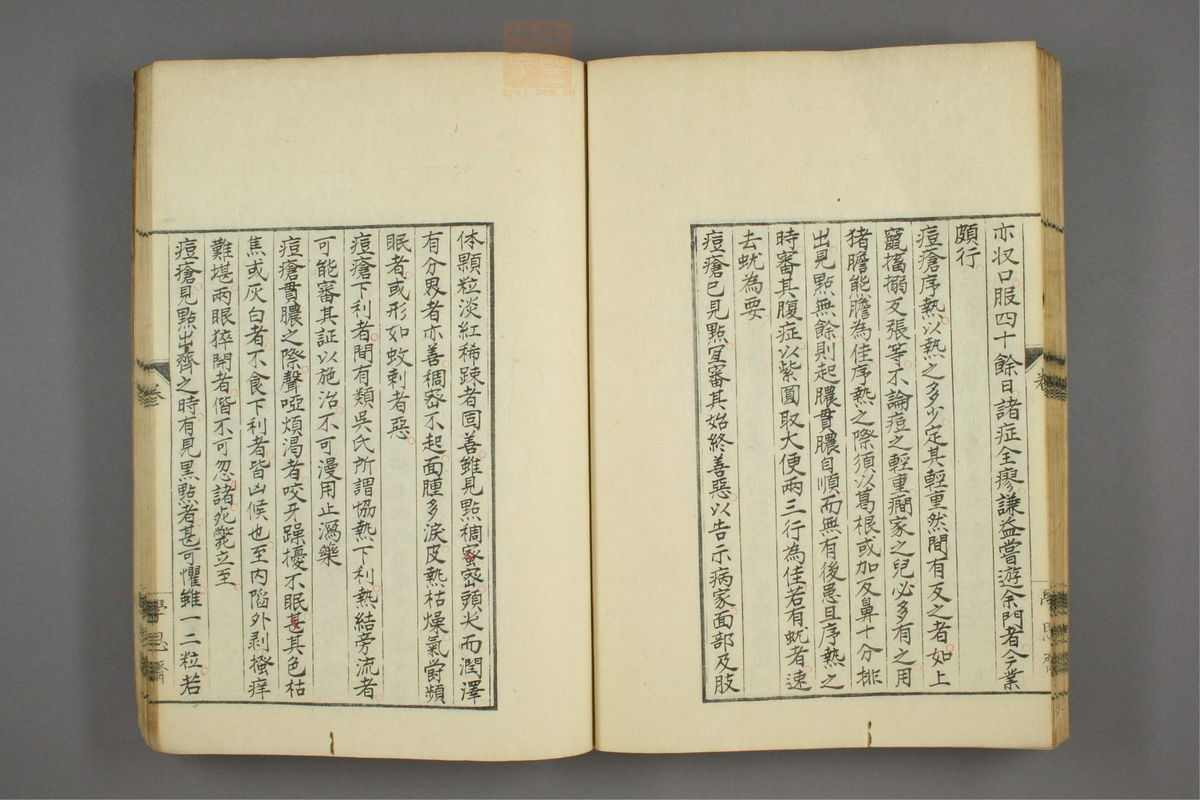 亦収口服四十餘日諸症全瘳謙益嘗遊余門者今業
頗行
痘瘡序熱以熱之多少定其輕重然間有反之者如上
竄搐搦反張等不論痘之輕重癇家之兒必多有之用
猪膽熊膽為佳序熱之際須以葛根或加反鼻十分排
出見點無餘則起膿貫膿自順而無有後患且序熱之
時審其腹症以紫圓取大便兩三行為佳若有蚘者速
去蚘為要
痘瘡已見點宜審其始終善惡以告示病家面部及肢
体顆粒淡紅稀踈者固善雖見點稠密頭尖而潤澤
有分界者亦善稠密不起面腫多淚皮熱枯燥氣欝頻
眠者或形如蚊刺者惡
痘瘡下利者間有類吳氏所謂協熱下利熱結旁流者
可能審其証以施治不可漫用止瀉藥
痘瘡貫膿之際聲啞煩渴者咬牙躁擾不眠甚其色枯
焦或灰白者不食下利者皆凶候也至内陷外剥搔痒
難堪兩眼猝開者偕不可忽諸死斃立至
痘瘡見點出齊之時有見黑點者甚可懼雖一二粒若
卷
學思齋
zysj.com.cn